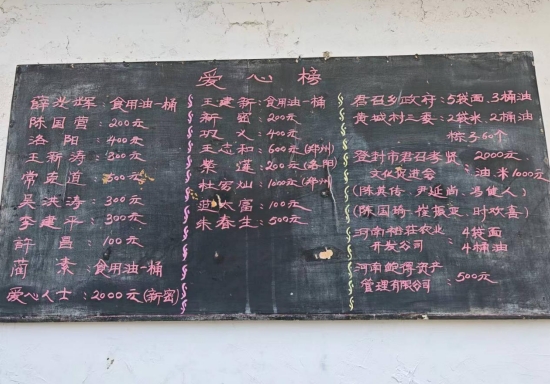 爱心榜
薛光辉:食用油一桶
陈国营:200元
洛阳:400元
王新涛:300元
常宏道:500元
吴洪涛:300元
李建平:300元
許昌:100元
蔺素:食用油一桶
爱心人士:2000元(新密)
王建新:食用油一桶
新密:200元
巩义:400元
王志和:600元(郑州)
荣莲:200元(洛阳)
杜富灿:1000元(郑州)
大富:100元
朱春生:500元
君召乡政府:5袋面.3桶油
黄城村三委:2袋米.2桶油
粽360个
登封市君召孝贤 2000元
文化促进会:油.米1000元
(陈其传.尹延尚.冯健人)
(陈国琦.崔振亚.时欢喜)
河南裕荘农业 4袋面
开发公司:4桶油
河南 资产
管理有限公司:500元